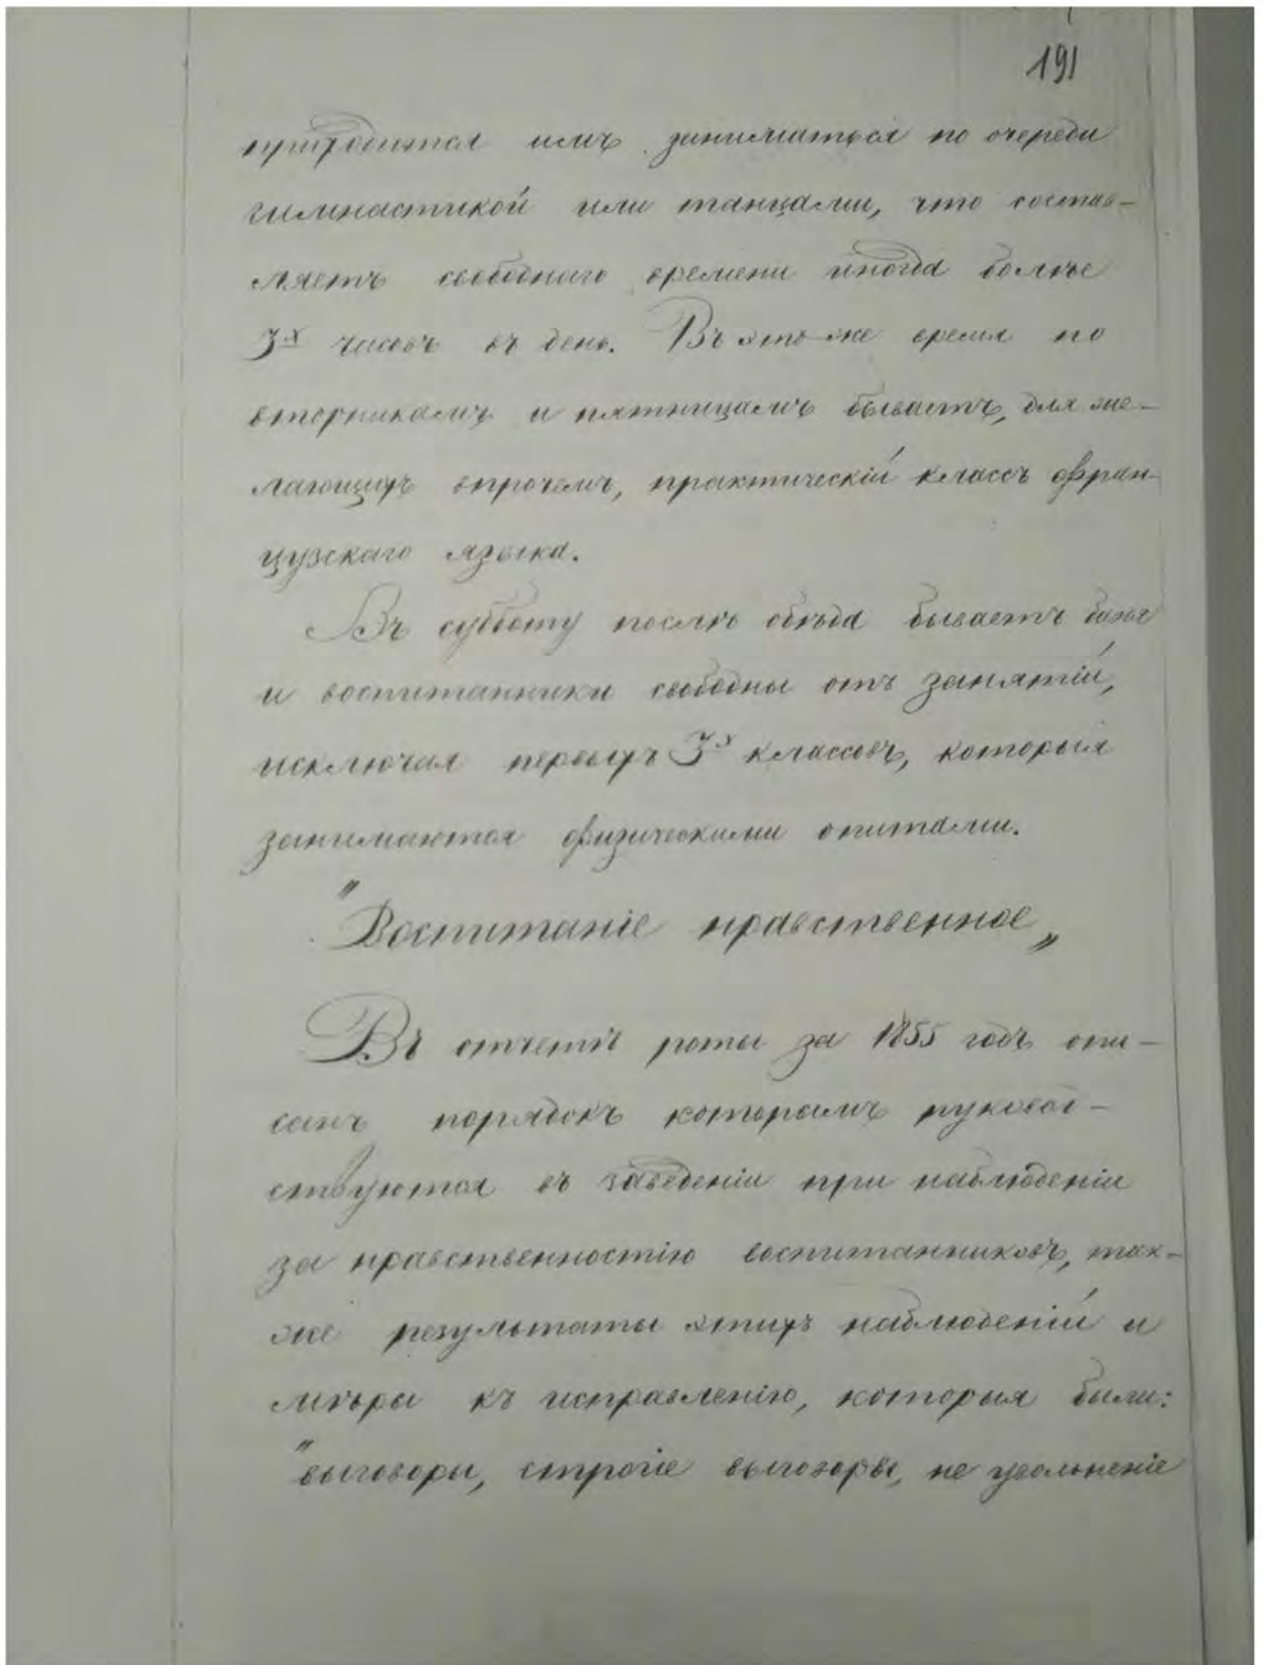 191
приходится имъ заниматься по очереди
гимнастикой или танцами, что состав-
ляетъ свободнаго времени иногда болѣе
3х часовъ въ день. Въ это-же время по
вторникамъ и пятницамъ бываетъ, для же-
лающихъ впрочемъ, практическій классъ фран-
цузскаго языка.
Въ субботу послѣ обѣда бываетъ баня
и воспитанники свободны отъ занятій,
исключая первыхъ 3х классовъ, которыя
занимаются физическими опытами.
"Воспитаніе нравственное„
Въ отчетѣ роты за 1855 годъ опи-
санъ порядокъ которымъ руковод-
ствуются въ заведеніи при наблюденіи
за нравственностію воспитанниковъ, так-
же результаты этихъ наблюденій и
мѣры къ исправленію, которыя были:
"выговоры, строгіе выговоры, не увольненіе